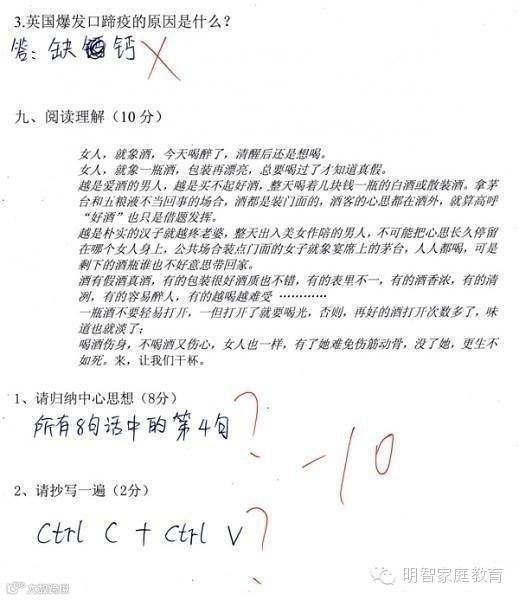 3.英国爆发口蹄疫的原因是什么？
答：缺钙
九、阅读理解（10 分）
女人，就象酒，今天喝醉了，清醒后还是想喝。
女人，就象一瓶酒，包装再漂亮，总要喝过了才知道真假。
越是爱酒的男人，越是买不起好酒，整天喝着几块钱一瓶的白酒或散装酒。拿茅
台和五粮液不当回事的场合，酒都是装门面的，酒客的心思都在酒外，就算高呼
“好酒”也只是借题发挥。
越是朴实的汉子就越疼老婆，整天出入美女作陪的男人，不可能把心思长久停留
在哪个女人身上，公共场合装点门面的女子就象宴席上的茅台，人人都喝，可是
剩下的酒瓶谁也不好意思带回家。
酒有假酒真酒，有的包装很好酒质也不错，有的表里不一，有的酒香浓，有的清
冽，有的容易醉人，有的越喝越难受 …………
一瓶酒不要轻易打开，一但打开了就要喝光，否则，再好的酒打开次数多了，味
道也就淡了；
喝酒伤身，不喝酒又伤心，女人也一样，有了她难免伤筋动骨，没了她，更生不
如死。来，让我们干杯。
1、请归纳中心思想（8分）
所有8句话中的第4句
?
-10
2、请抄写一遍（2分）
Ctrl C + Ctrl V
?
明智家庭教育